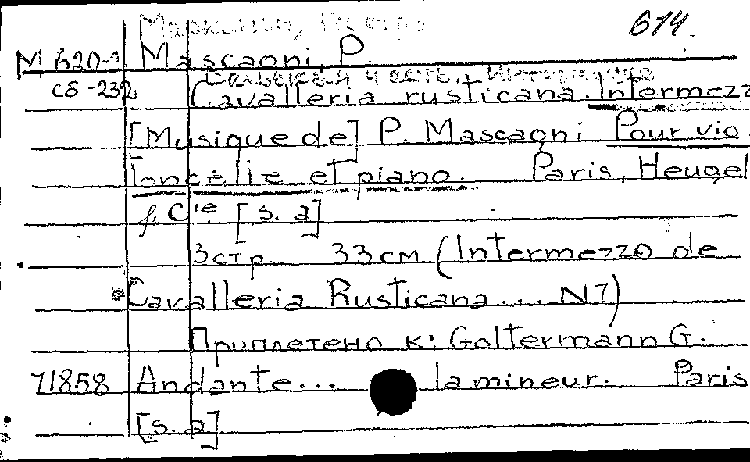 614.
М 620-3 Mascagni, P
сб-232 Cavalleria rusticana. Intermezz
[Musique de] P. Mascagni Pour vio
loncelle et piano. Paris, Heugel
& Cie [s. a]
3 стр 33 см (Intermezzo de
Cavalleria Rusticana ... N7)
Приплетено к: Goltermann G.
71858 Andante... la mineur. Paris
[s. a]